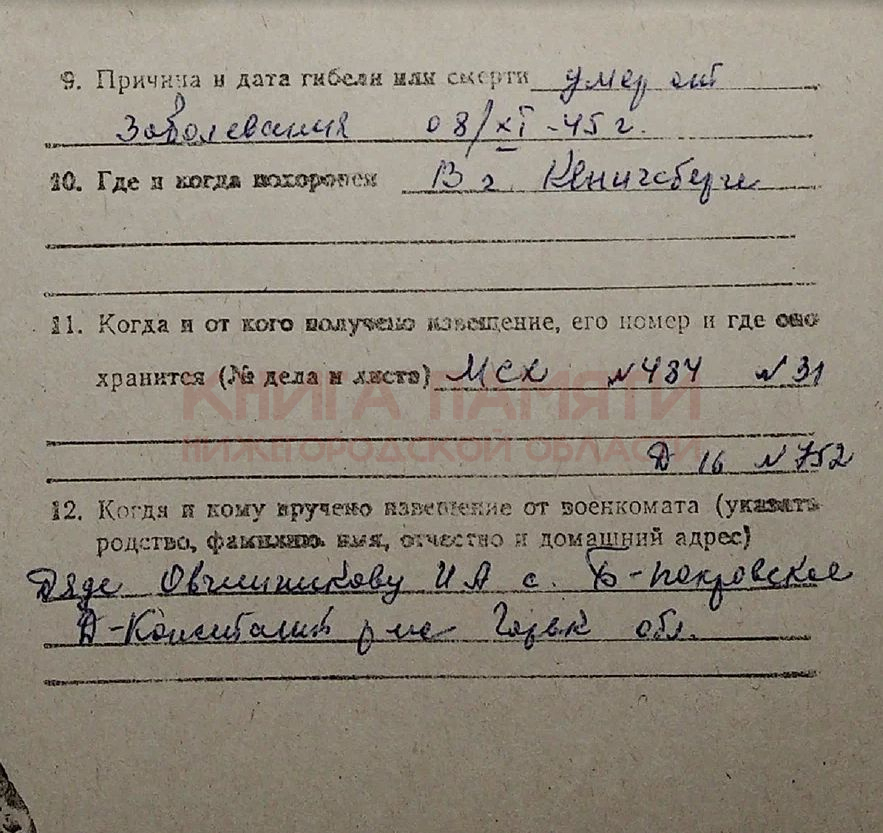 9. Причина и дата гибели или смерти умер от
Заболевания 08/XI-45 г.
10. Где и когда похоронен В г. Кенигсберге
11. Когда и от кого получено извещение, его номер и где оно
хранится (№ дела и листа) МСХ №484 №31
КНИГА ПАМЯТИ
НИЖЕГОРОДСКОЙ ОБЛАСТИ
Д 16 №752
12. Когда и кому вручено извещение от военкомата (указать
родство, фамилию, имя, отчество и домашний адрес)
Дяде Овчинникову И А с. Б-покровское
Д-Константин р-не Горьк обл.